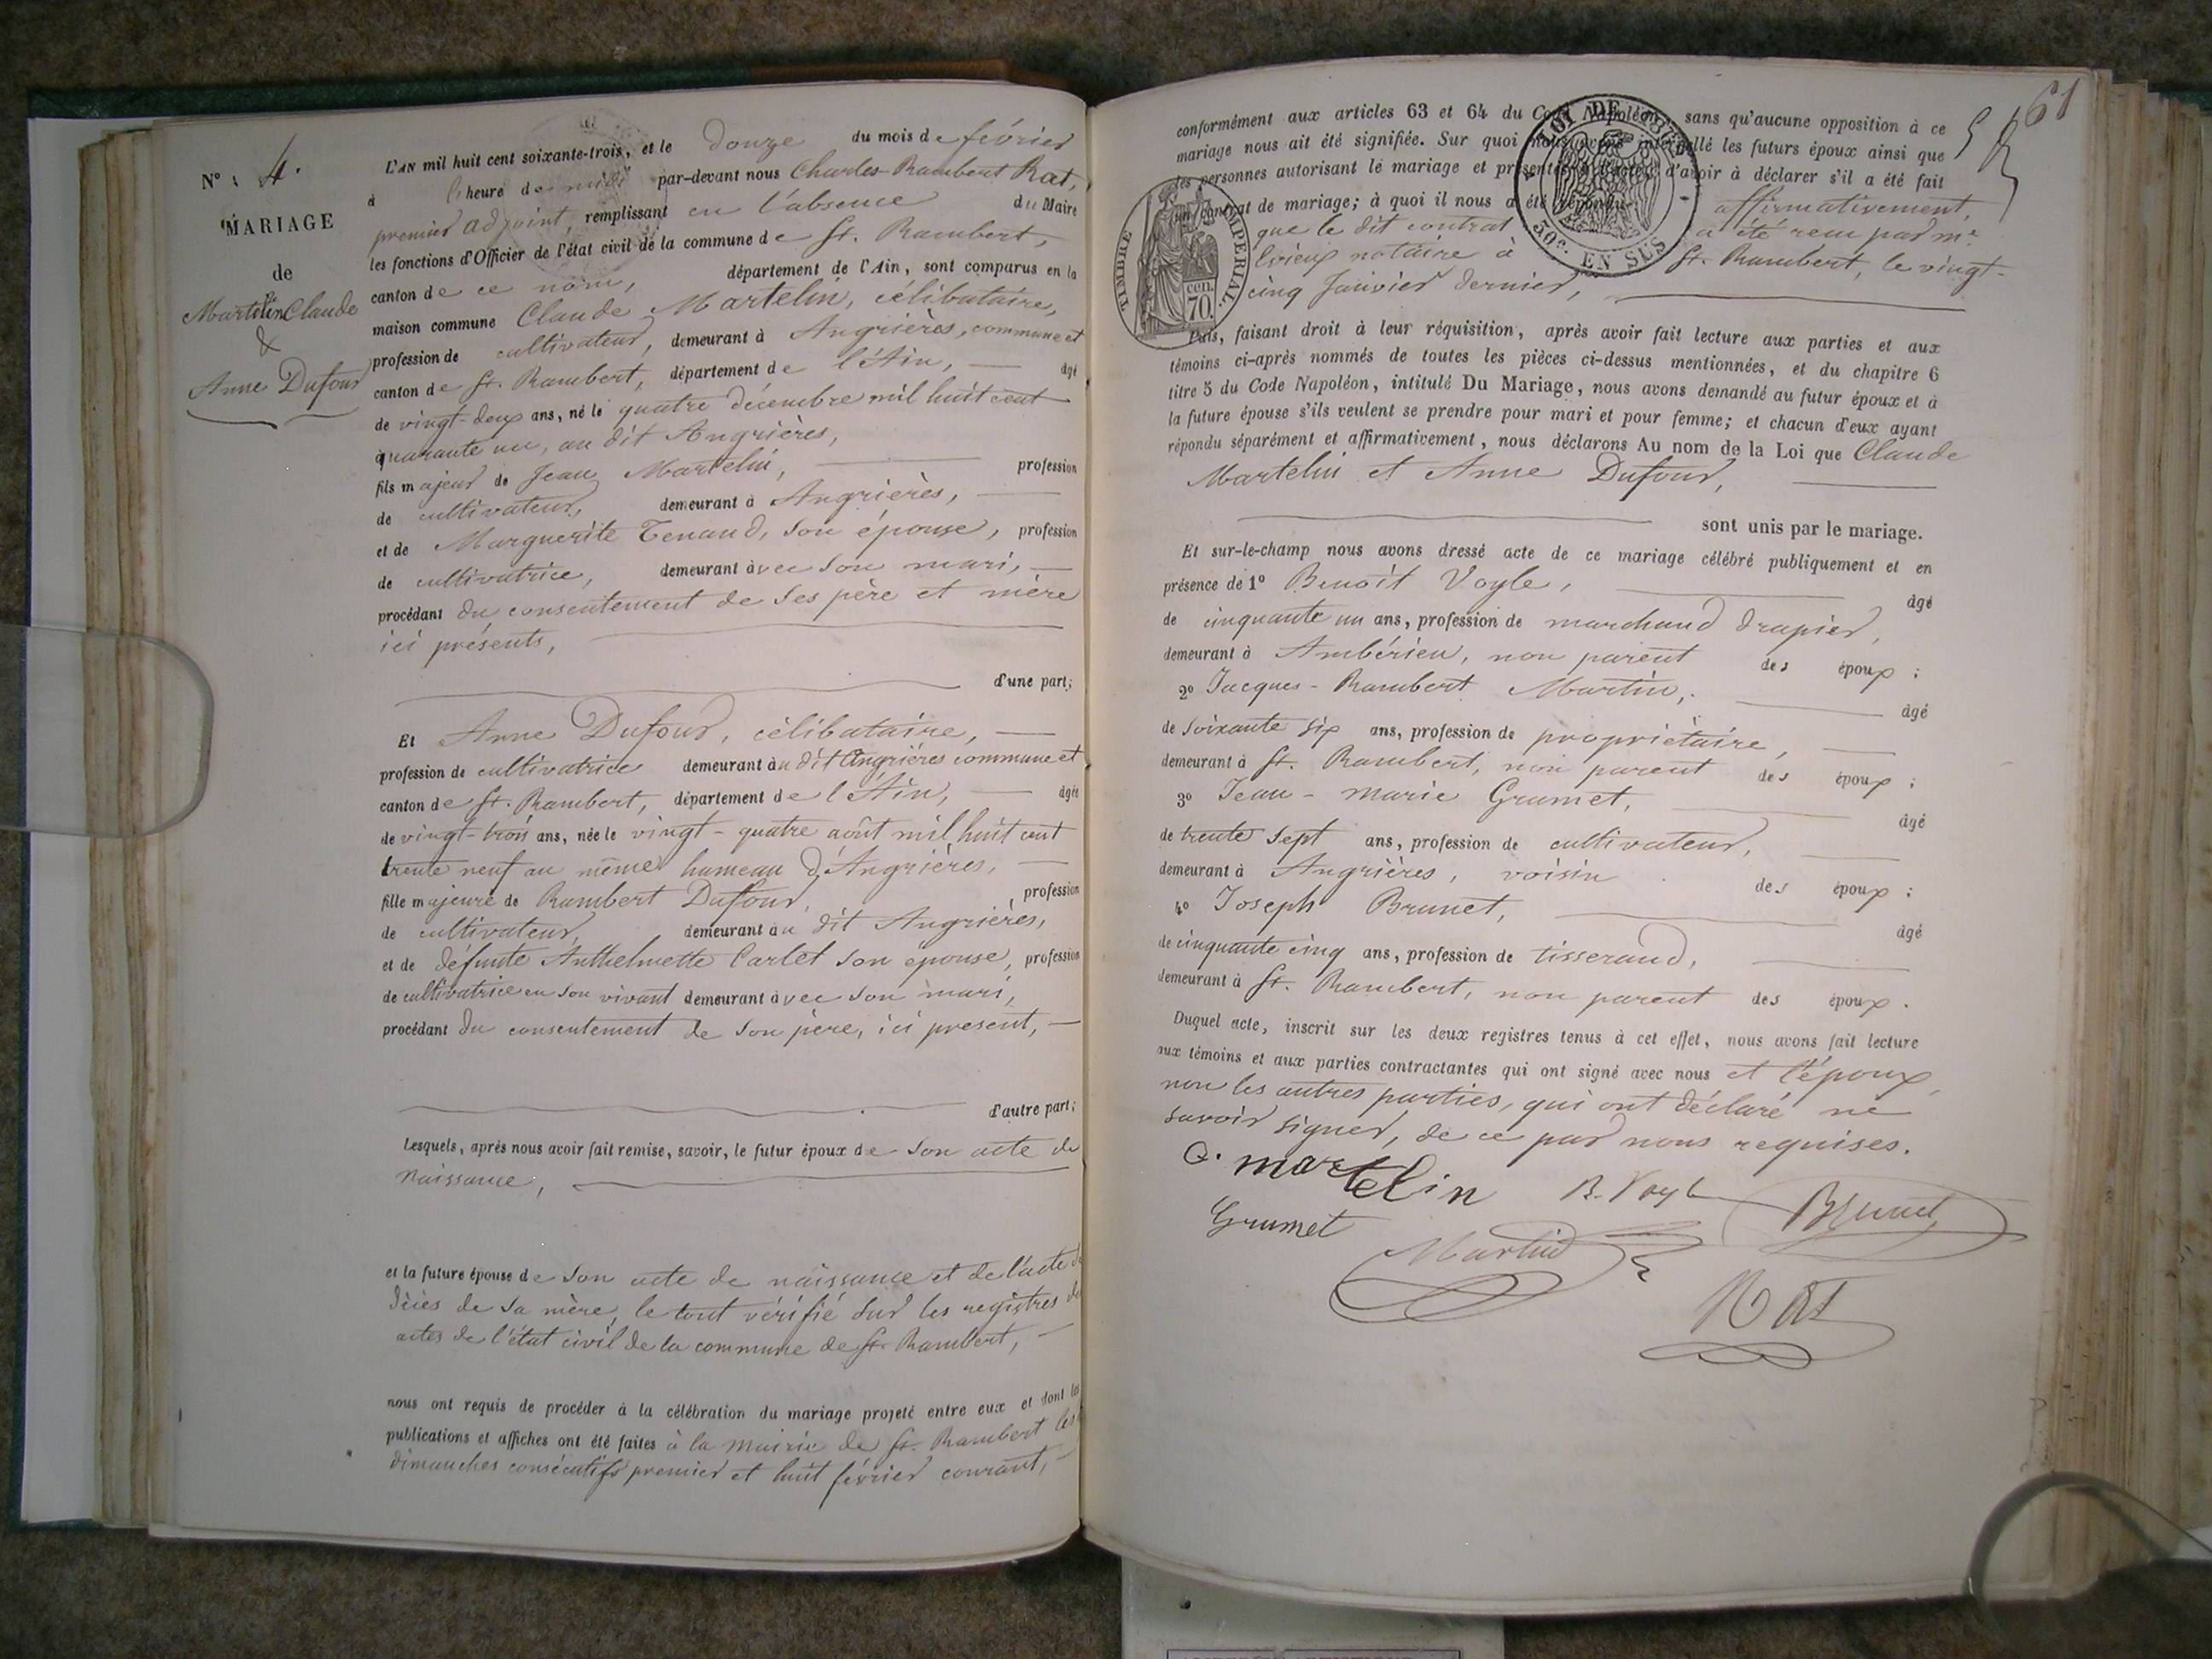 N° 4.
MARIAGE
de
Martelin Claude
&
Anne Dufour
L'AN mil huit cent soixante-trois, et le douze du mois de février
à l'heure de midi par-devant nous Charles-Rambert Rat,
premier adjoint, remplissant en l'absence du Maire
les fonctions d'Officier de l'état civil de la commune de St. Rambert,
canton de ce nom, département de l'Ain, sont comparus en la
maison commune Claude Martelin, célibataire,
profession de cultivateur, demeurant à Angrières, commune et
canton de St. Rambert, département de l'Ain, âgé
de vingt-deux ans, né le quatre décembre mil huit cent
quarante un, au dit Angrières,
fils majeur de Jean Martelin, profession
de cultivateur, demeurant à Angrières,
et de Marguerite Tenand, son épouse, profession
de cultivatrice, demeurant avec son mari,
procédant du consentement de ses père et mère
ici présents,
d'une part;
Et Anne Dufour, célibataire,
profession de cultivatrice demeurant au dit Angrières commune et
canton de St. Rambert, département de l'Ain, âgée
de vingt-trois ans, née le vingt-quatre août mil huit cent
trente neuf au même hameau d'Angrières,
fille majeure de Rambert Dufour, profession
de cultivateur, demeurant au dit Angrières,
et de défunte Anthelmette Carlet son épouse, profession
de cultivatrice en son vivant demeurant avec son mari,
procédant du consentement de son père, ici présent,
d'autre part;
Lesquels, après nous avoir fait remise, savoir, le futur époux de son acte de
naissance,
et la future épouse de son acte de naissance et de l'acte de
décès de sa mère, le tout vérifié sur les registres de
actes de l'état civil de la commune de St. Rambert,
nous ont requis de procéder à la célébration du mariage projeté entre eux et dont les
publications et affiches ont été faites à la mairie de St. Rambert les
dimanches consécutifs premier et huit février courant,
61
conformément aux articles 63 et 64 du Code Napoléon, sans qu'aucune opposition à ce
mariage nous ait été signifiée. Sur quoi nous avons interpellé les futurs époux ainsi que
les personnes autorisant le mariage et présentes d'avoir à déclarer s'il a été fait
un contrat de mariage; à quoi il nous a été répondu affirmativement,
que le dit contrat a été reçu par me.
notaire à St. Rambert, le vingt-
cinq Janvier dernier,
TIMBRE IMPERIAL.
cen.
70.
LOI DE
50c. EN SUS
Puis, faisant droit à leur réquisition, après avoir fait lecture aux parties et aux
témoins ci-après nommés de toutes les pièces ci-dessus mentionnées, et du chapitre 6
titre 5 du Code Napoléon, intitulé Du Mariage, nous avons demandé au futur époux et à
la future épouse s'ils veulent se prendre pour mari et pour femme; et chacun d'eux ayant
répondu séparément et affirmativement, nous déclarons Au nom de la Loi que Claude
Martelin et Anne Dufour,
sont unis par le mariage.
Et sur-le-champ nous avons dressé acte de ce mariage célébré publiquement et en
présence de 1° Benoît Voyle, âgé
de cinquante un ans, profession de marchand drapier,
demeurant à Ambérieu, non parent des époux;
2° Jacques-Rambert Martin, âgé
de soixante six ans, profession de propriétaire,
demeurant à St. Rambert, non parent des époux;
3° Jean-Marie Grumet, âgé
de trente sept ans, profession de cultivateur,
demeurant à Angrières, voisin des époux;
4° Joseph Brunet, âgé
de cinquante cinq ans, profession de tisserand,
demeurant à St. Rambert, non parent des époux.
Duquel acte, inscrit sur les deux registres tenus à cet effet, nous avons fait lecture
aux témoins et aux parties contractantes qui ont signé avec nous et l'époux,
non les autres parties, qui ont déclaré ne
savoir signer, de ce par nous requises.
C. martelin B. Voyle Brunet
Grumet
Martin
Rat